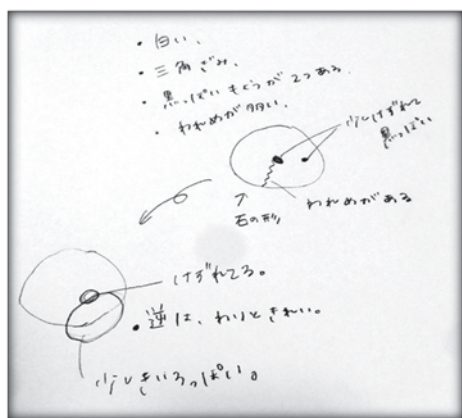 ・白い、
・三角ぎみ、
・黒っぽいもようが2つある
・われめが多い、
少しけずれて
黒っぽい
↑
石の形
われめがある
けずれてる。
・逆は、わりときれい。
少しきいろっぽい。